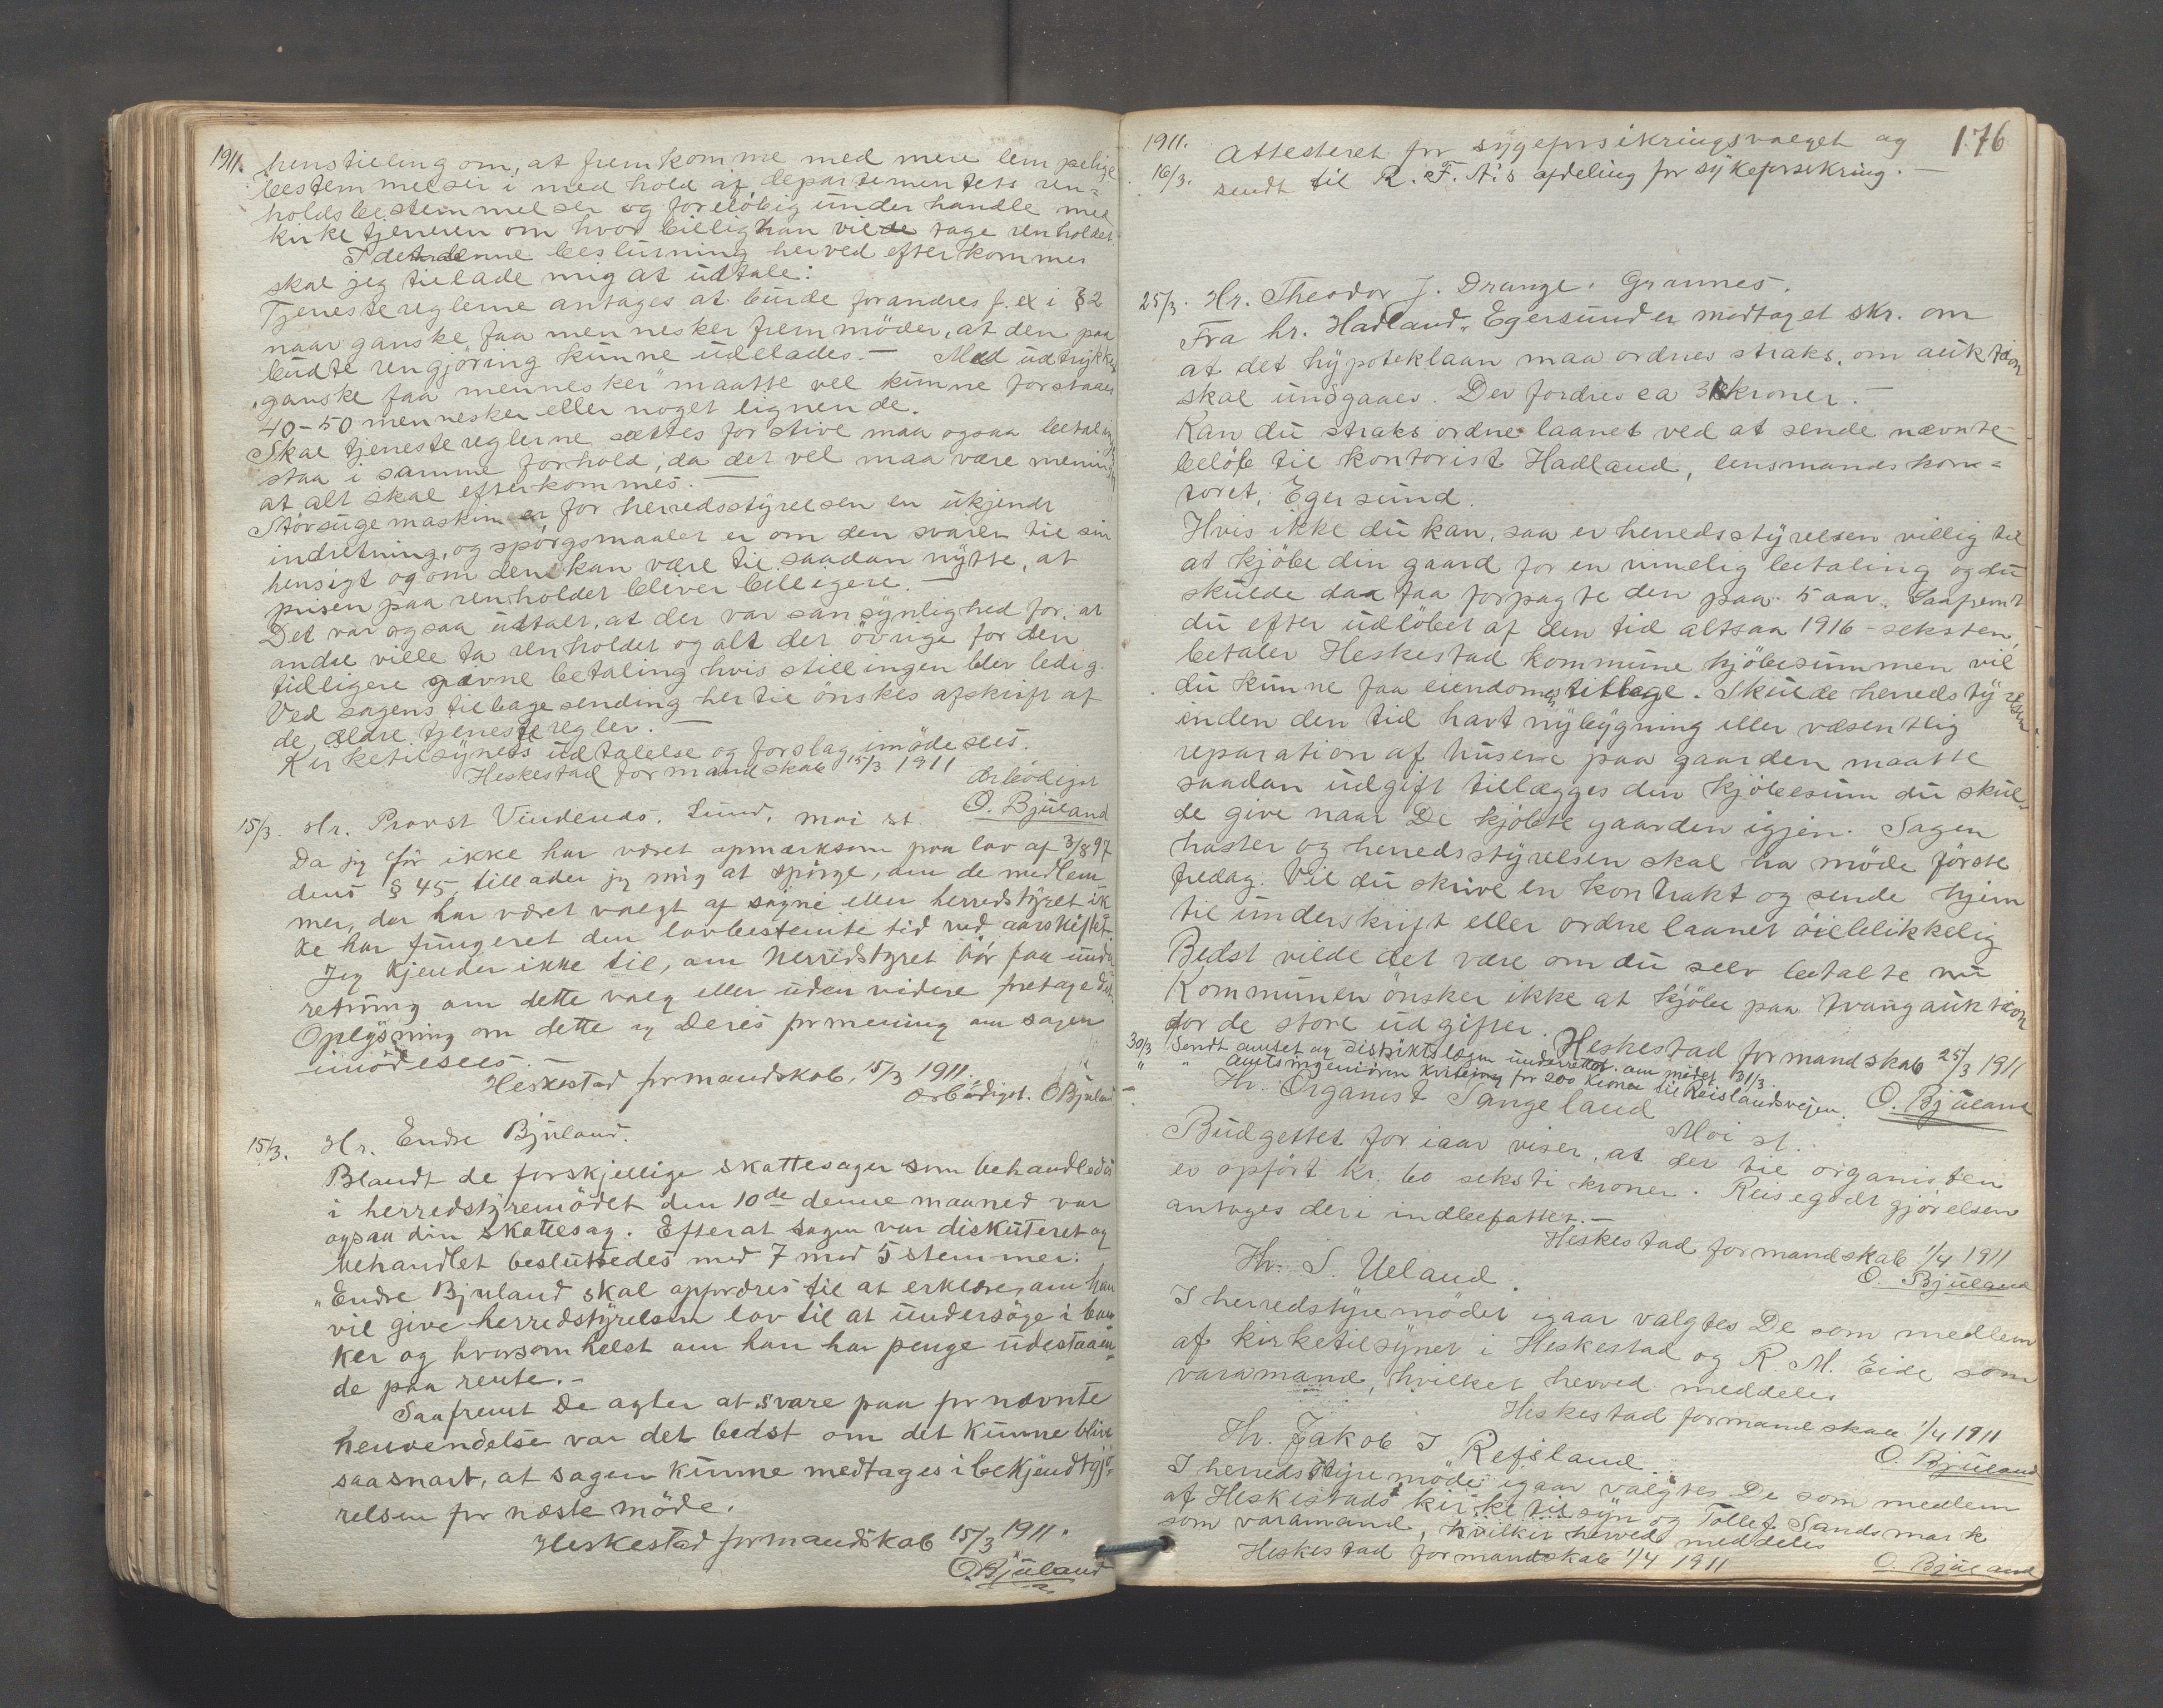 1911. henstilling om, at fremkomme med mere lempelige
bestemmelser i medhold af departementets ren=
holdsbestemmelser og foreløbig underhandle med
kirketjeneren om hvor billig han vilde tage renholdet.
I det denne beslutning herved efterkommes
skal jeg tillade mig at udtale:
Tjenestereglerne antages at burde forandres f. ex i § 2
naar ganske faa mennesker fremmöder, at den paa
budte rengjöring kunne udelades. — Med udtrykket
"ganske faa mennesker" maatte vel kunne forstaaes
40-50 mennesker eller noget lignende.
Skal tjenestereglerne sættes for stive maa ogsaa betaling
staa i samme forhold, da det vel maa være mening
at alt skal efterkommes. —
Stövsugemaskine er for herredsstyrelsen en ukjendt
indretning, og spörgsmaalet er om den svarer til sin
hensigt og om den kan være til saadan nytte, at
prisen paa renholdet bliver billigere. —
Det var ogsaa udtalt, at der var sansynlighed for, at
andre ville ta renholdet og alt det övrige for den
tidligere gavne betaling hvis stillingen blev ledig.
Ved sagens tilbagesending hertil önskes afskrift af
de ældre tjenesteregler. —
Kirketilsynets udtalelse og forslag imödesees.
Heskestad formandskab 15/3 1911
Ærbödigst
O. Bjuland
15/3. Hr. Provst Vindenes, Lund, Moi st.
Da jeg för ikke har været opmærksom paa lov af 3/8 97
dens § 45, tillader jeg mig at spörge, om de medlem
mer, der har været valgt af sogne eller herredstyret ik
ke har fungeret den lovbestemte tid ved aarskiftet.
Jeg kjender ikke til, om herredstyret bör faa under
retning om dette valg eller uden videre foretage det.
Oplysning om dette og Deres formening om sagen
imödesees. —
Heskestad formandskab, 15/3 1911.
Ærbödigst. O Bjuland
15/3. Hr. Endre Bjuland.
Blandt de forskjellige skattesager som behandledes
i herredstyremödet den 10de denne maaned var
ogsaa din skattesag. Efterat sagen var diskuteret og
behandlet besluttedes med 7 mod 5 stemmer:
"Endre Bjuland skal opfordres til at erklære, om han
vil give herredstyrelsen lov til at undersöge i ban
ker og hvorsomhelst om han har penge udestaaen=
de paa rente. —
Saafremt De agter at svare paa fornævnte
henvendelse var det bedst om det kunne blive
saasnart, at sagen kunne medtages i bekjendtgjö=
relsen for næste möde.
Heskestad formandskab 15/3 1911.
O. Bjuland
176
1911. Attesteret for sygeforsikringsvalget og
16/3. sendt til R. F. A's afdeling for sykeforsikring. —
25/3. Hr. Theodor J. Drange. Grannes.
Fra hr. Hadland, Egersund er modtaget skr. om
at det hypoteklaan maa ordnes straks, om auktion
skal undgaaes. Der fordres ca kroner. —
Kan du straks ordne laanet ved at sende nævnte
belöb til kontorist Hadland, lensmandskon=
toret, Egersund.
Hvis ikke du kan, saa er herredsstyrelsen villig til
at kjöbe din gaard for en rimelig betaling og du
skulde daa faa forpagte den paa 5 aar. Saafremt
du efter udlöbet af den tid altsaa 1916 - seksten,
betaler Heskestad kommune kjöbesummen vil
du kunne faa eiendommen tilbage. Skulde herredstyrelsen
inden den tid havt nybygning eller væsentlig
reparation af husene paa gaarden maatte
saadan udgift tillægges den kjöbesum du skul=
de give naar De kjöbte gaarden igjen. Sagen
haster og herredsstyrelsen skal ha möde förste
fredag. Vil du skrive en kontrakt og sende hjem
til underskrift eller ordne laanet öieblikkelig
Bedst vilde det være om du selv betalte nu
Kommunen önsker ikke at kjöbe paa tvangauktion
for de store udgifter. Heskestad formandskab 25/3 1911
O. Bjuland
30/3 Sendt amtet og distriktslægen underrettet om mödet 31/3.
" " Amtsingeniören kvittering for 200 kroner til Reislandsvejen.
Hr. Organist Sangeland Moi st.
Budgettet for iaar viser, at der til organisten
er opfört kr. 60 seksti kroner. Reisegodtgjörelsen
antages deri indbefattet. —
Heskestad formandskab 1/4 1911
O. Bjuland
Hr. S. Ueland.
I herredstyremödet igaar valgtes De som medlem
af kirketilsynet i Heskestad og R. M. Eide som
varamand, hvilket herved meddeles
Heskestad formandskab 1/4 1911
O. Bjuland
Hr. Jakob I Refsland.
I herredstyremöde igaar valgtes De som medlem
af Heskestads kirketilsyn og Tollef Sandsmark
som varamand, hvilket herved meddeles
Heskestad formandskab 1/4 1911
O. Bjuland